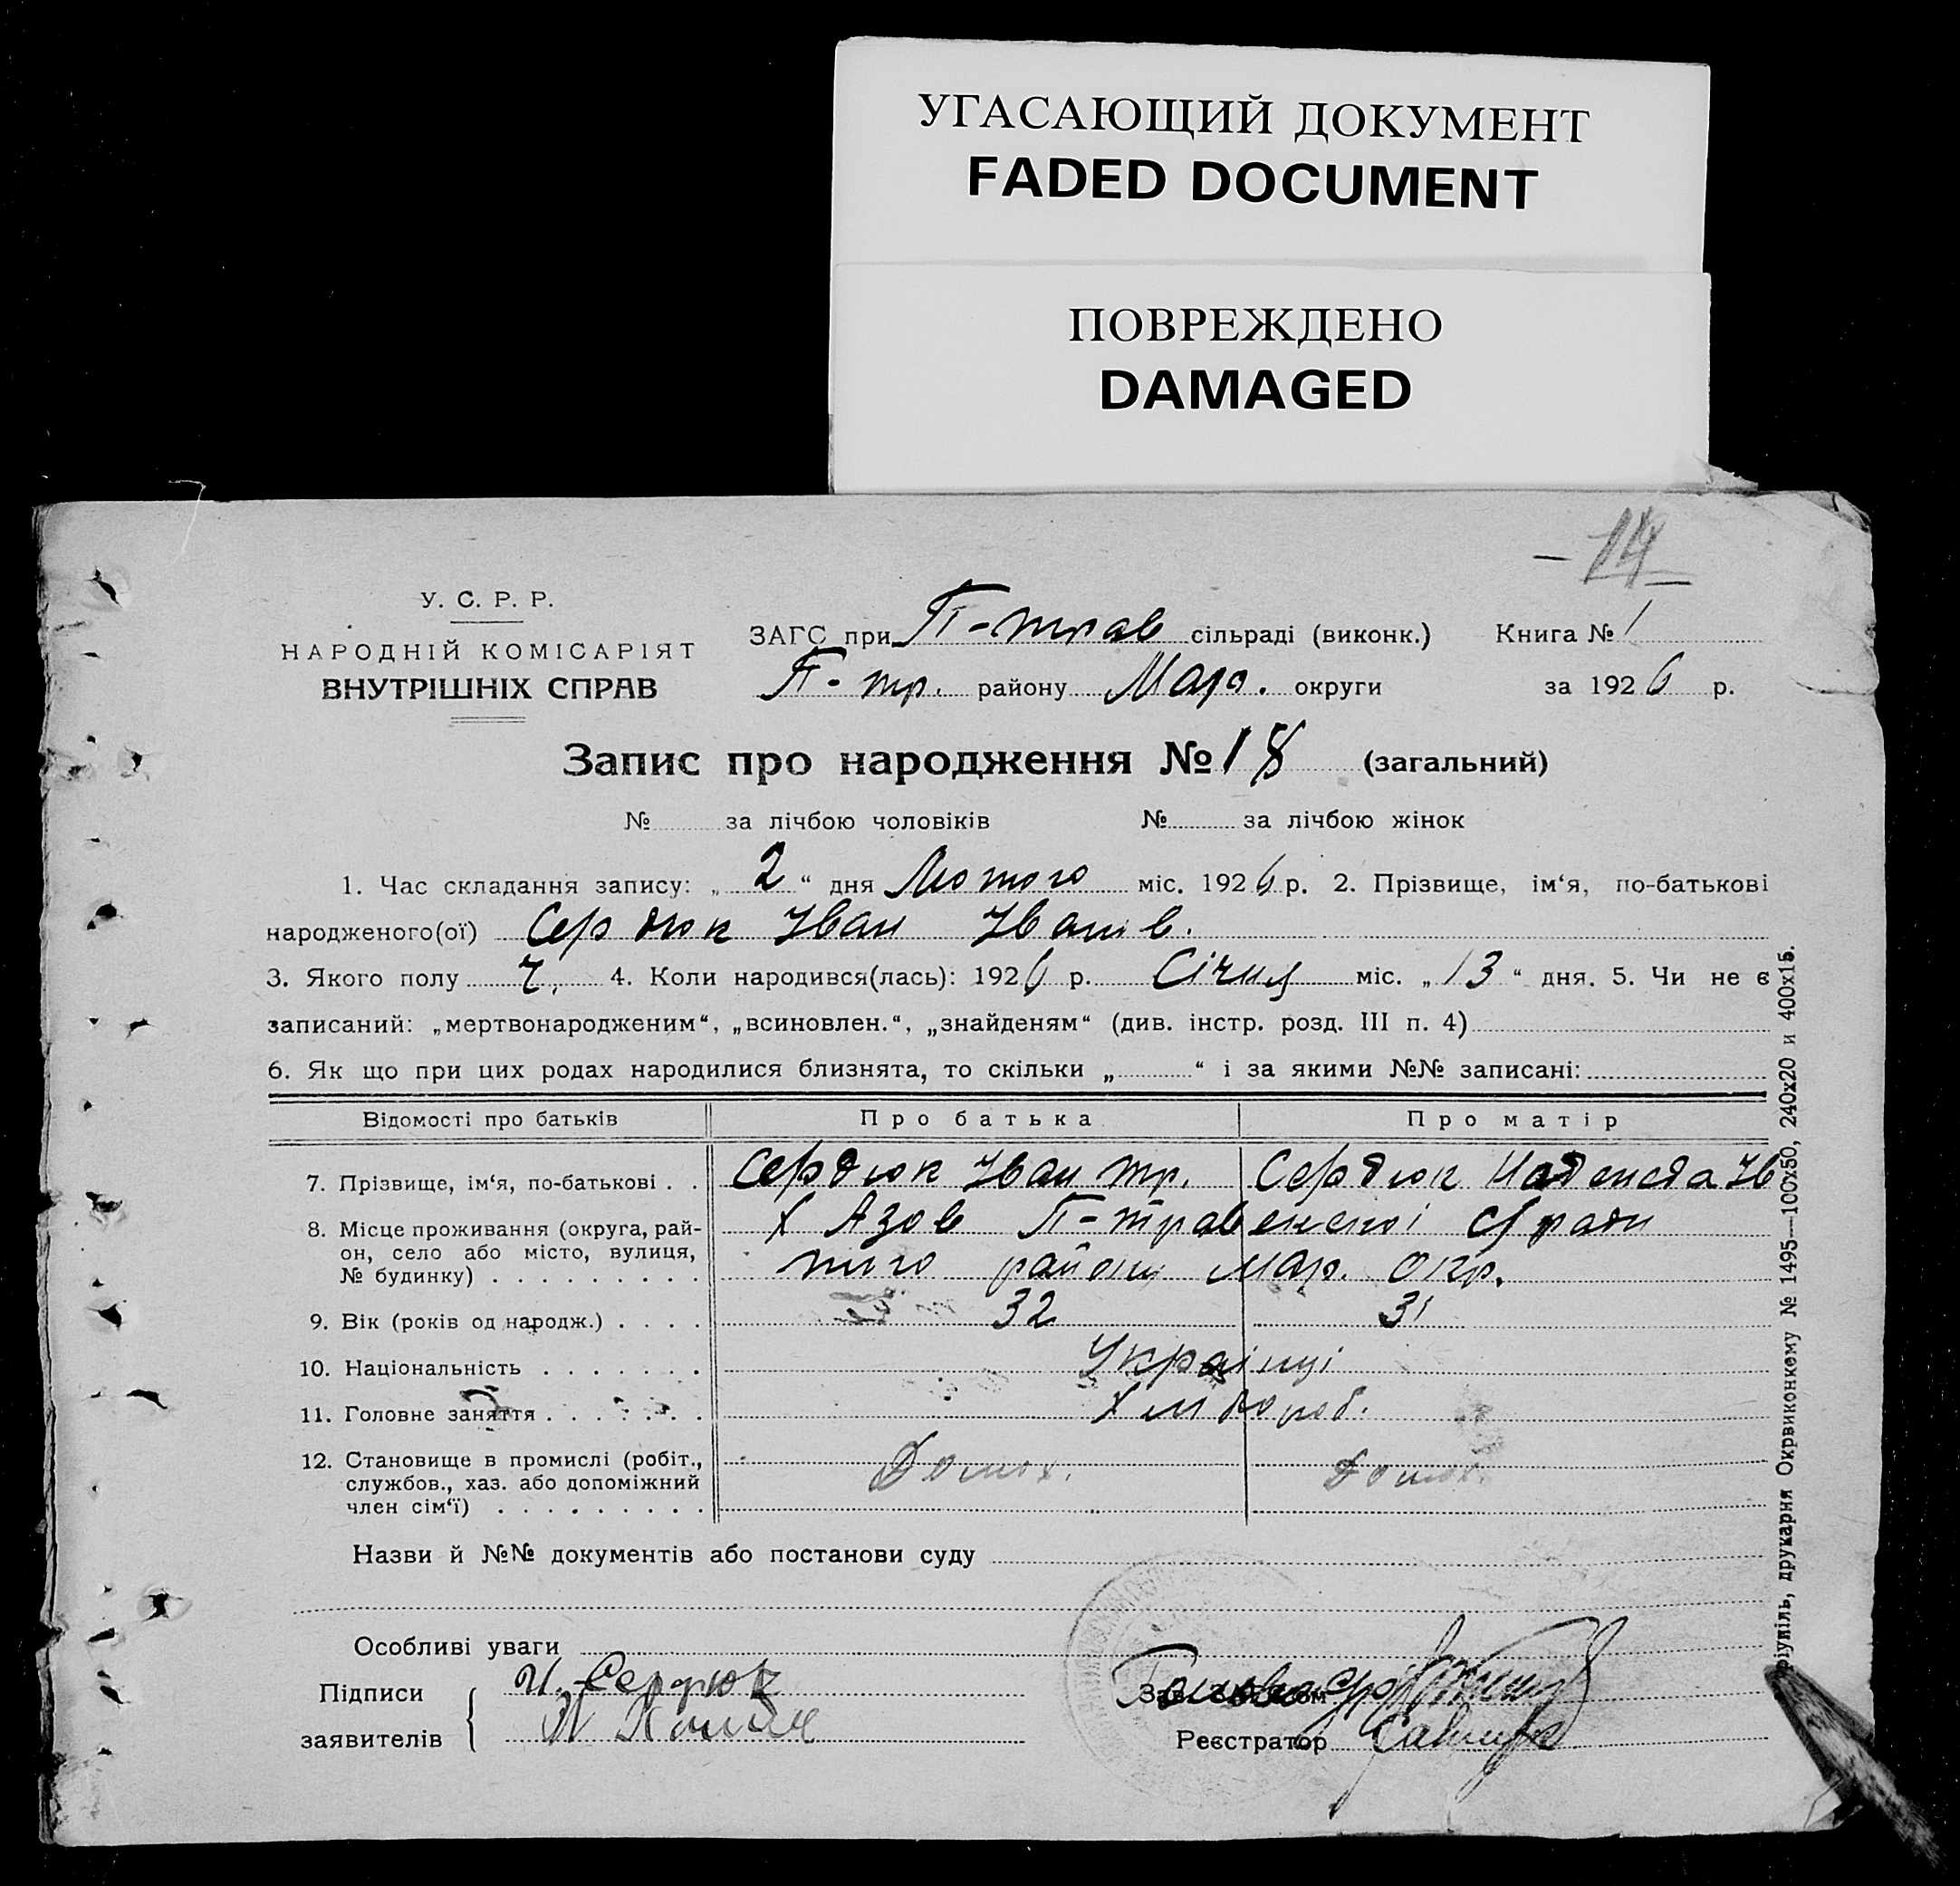 УГАСАЮЩИЙ ДОКУМЕНТ
FADED DOCUMENT
ПОВРЕЖДЕНО
DAMAGED
— 14 —
У. С. Р. Р.
НАРОДНІЙ КОМІСАРІЯТ
ВНУТРІШНІХ СПРАВ
ЗАГС при П-трав сільраді (виконк.) Книга № 1
П-тр. району Мар. округи за 1926 р.
Запис про народження № 18 (загальний)
№ за лічбою чоловіків № за лічбою жінок
1. Час складання запису: „ 2 “ дня Лютого міс. 1926 р. 2. Прізвище, ім‘я, по-батькові
народженого(ої) Сердюк Іван Іванів.
3. Якого полу Ч. 4. Коли народився(лась): 1926 р. Січня міс. „ 13 “ дня. 5. Чи не є
записаний: „мертвонародженим“, „всиновлен.“, „знайденям“ (див. інстр. розд. III п. 4)
6. Як що при цих родах народилися близнята, то скільки „ “ і за якими №№ записані:
Відомості про батьків Про батька Про матір
7. Прізвище, ім‘я, по-батькові . . Сердюк Іван тр. Сердюк Надежда Ів
8. Місце проживання (округа, рай-
он, село або місто, вулиця,
№ будинку) . . . . . . . . .
Х Азов П-травенскоі С/ради
того району Мар. окр.
9. Вік (років од народж.) . . . . 32 31
10. Національність . . . . . . . Українці
11. Головне заняття . . . . . . . Хлібороб.
12. Становище в промислі (робіт.,
службов., хаз. або допоміжний
член сім‘ї) . . . . . . . . .
Домох. Домох.
Назви й №№ документів або постанови суду
Особливі уваги
Підписи
заявителів
И. Сердюк
Голова
Реєстратор
ріупіль, друкарня Окрвиконкему № 1495—100х50, 240х20 и 400х15.